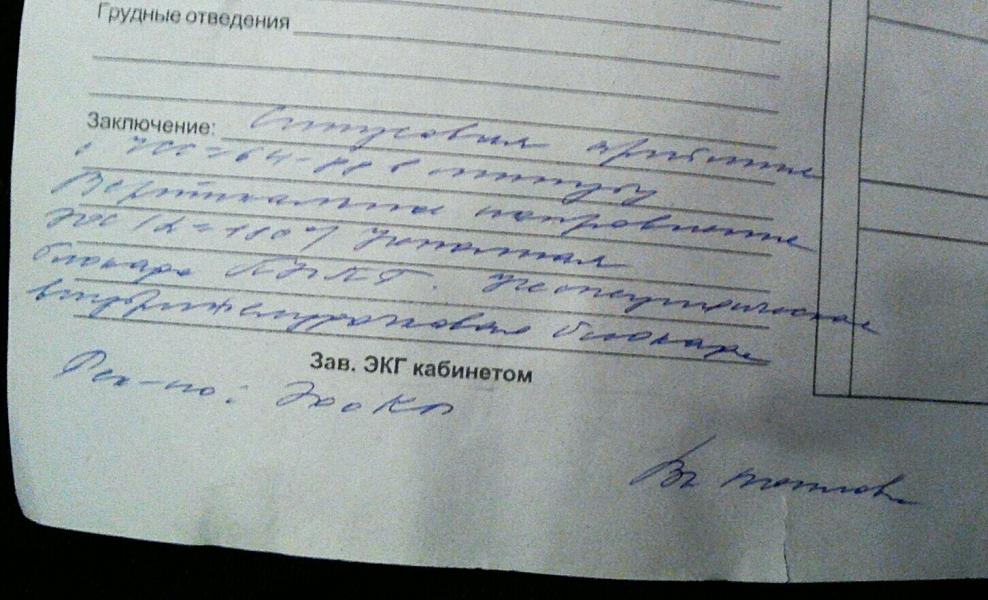 Грудные отведения
Заключение: Синусовая аритмия
с ЧСС=64-88 в минуту
Вертикальное направление
ЭОС Неполная
блокада ПНПГ.
внутрижелудочковая блокада
Зав. ЭКГ кабинетом
Рек-но: ЭхоКГ